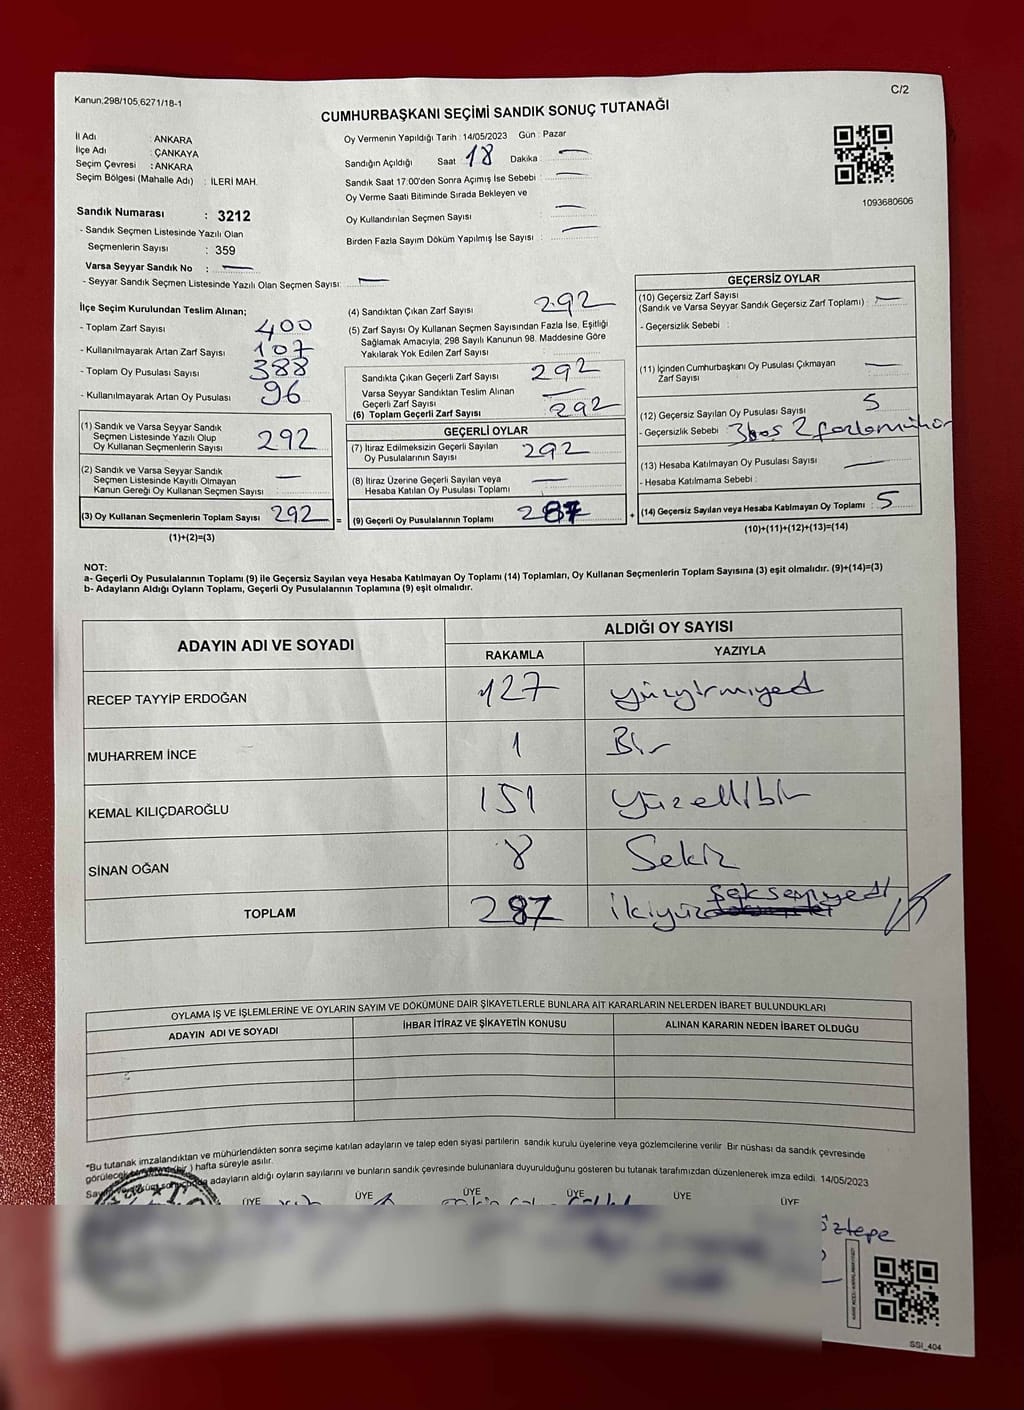 Kanun;298/105,6271/18-1
C/2
CUMHURBAŞKANI SEÇİMİ SANDIK SONUÇ TUTANAĞI
İl Adı : ANKARA
İlçe Adı : ÇANKAYA
Seçim Çevresi : ANKARA
Seçim Bölgesi (Mahalle Adı) : İLERİ MAH.
Sandık Numarası : 3212
- Sandık Seçmen Listesinde Yazılı Olan
Seçmenlerin Sayısı : 359
Varsa Seyyar Sandık No : —
- Seyyar Sandık Seçmen Listesinde Yazılı Olan Seçmen Sayısı: —
Oy Vermenin Yapıldığı Tarih : 14/05/2023 Gün : Pazar
Sandığın Açıldığı Saat 18 Dakika : —
Sandık Saat 17:00'den Sonra Açımış İse Sebebi : —
Oy Verme Saati Bitiminde Sırada Bekleyen ve
Oy Kullandırılan Seçmen Sayısı —
Birden Fazla Sayım Döküm Yapılmış İse Sayısı : —
1093680606
İlçe Seçim Kurulundan Teslim Alınan;
- Toplam Zarf Sayısı 400
- Kullanılmayarak Artan Zarf Sayısı 107
- Toplam Oy Pusulası Sayısı 388
- Kullanılmayarak Artan Oy Pusulası 96
(1) Sandık ve Varsa Seyyar Sandık
Seçmen Listesinde Yazılı Olup
Oy Kullanan Seçmenlerin Sayısı 292
(2) Sandık ve Varsa Seyyar Sandık
Seçmen Listesinde Kayıtlı Olmayan
Kanun Gereği Oy Kullanan Seçmen Sayısı —
(3) Oy Kullanan Seçmenlerin Toplam Sayısı 292 =
(1)+(2)=(3)
(4) Sandıktan Çıkan Zarf Sayısı 292
(5) Zarf Sayısı Oy Kullanan Seçmen Sayısından Fazla İse, Eşitliği
Sağlamak Amacıyla, 298 Sayılı Kanunun 98. Maddesine Göre
Yakılarak Yok Edilen Zarf Sayısı
Sandıkta Çıkan Geçerli Zarf Sayısı 292
Varsa Seyyar Sandıktan Teslim Alınan
Geçerli Zarf Sayısı —
(6) Toplam Geçerli Zarf Sayısı 292
GEÇERLİ OYLAR
(7) İtiraz Edilmeksizin Geçerli Sayılan
Oy Pusulalarının Sayısı 292
(8) İtiraz Üzerine Geçerli Sayılan veya
Hesaba Katılan Oy Pusulası Toplamı —
(9) Geçerli Oy Pusulalarının Toplamı 287 +
GEÇERSİZ OYLAR
(10) Geçersiz Zarf Sayısı
(Sandık ve Varsa Seyyar Sandık Geçersiz Zarf Toplamı) : —
- Geçersizlik Sebebi :
(11) İçinden Cumhurbaşkanı Oy Pusulası Çıkmayan
Zarf Sayısı —
(12) Geçersiz Sayılan Oy Pusulası Sayısı 5
- Geçersizlik Sebebi 3 boş 2 fazla mühür
(13) Hesaba Katılmayan Oy Pusulası Sayısı —
- Hesaba Katılmama Sebebi :
(14) Geçersiz Sayılan veya Hesaba Katılmayan Oy Toplamı : 5
(10)+(11)+(12)+(13)=(14)
NOT:
a- Geçerli Oy Pusulalarının Toplamı (9) ile Geçersiz Sayılan veya Hesaba Katılmayan Oy Toplamı (14) Toplamları, Oy Kullanan Seçmenlerin Toplam Sayısına (3) eşit olmalıdır. (9)+(14)=(3)
b- Adayların Aldığı Oyların Toplamı, Geçerli Oy Pusulalarının Toplamına (9) eşit olmalıdır.
ADAYIN ADI VE SOYADI
ALDIĞI OY SAYISI
RAKAMLA YAZIYLA
RECEP TAYYİP ERDOĞAN 127 yüzyirmiyed
MUHARREM İNCE 1 Bir
KEMAL KILIÇDAROĞLU 151 yüzellibir
SİNAN OĞAN 8 Sekiz
TOPLAM 287 ikiyüz seksenyedi
OYLAMA İŞ VE İŞLEMLERİNE VE OYLARIN SAYIM VE DÖKÜMÜNE DAİR ŞİKAYETLERLE BUNLARA AİT KARARLARIN NELERDEN İBARET BULUNDUKLARI
ADAYIN ADI VE SOYADI İHBAR İTİRAZ VE ŞİKAYETİN KONUSU ALINAN KARARIN NEDEN İBARET OLDUĞU
*Bu tutanak imzalandıktan ve mühürlendikten sonra seçime katılan adayların ve talep eden siyasi partilerin sandık kurulu üyelerine veya gözlemcilerine verilir. Bir nüshası da sandık çevresinde
görülecek bir ) hafta süreyle asılır.
adayların aldığı oyların sayılarını ve bunların sandık çevresinde bulunanlara duyurulduğunu gösteren bu tutanak tarafımızdan düzenlenerek imza edildi. 14/05/2023
ÜYE ÜYE ÜYE ÜYE ÜYE ÜYE
Öztepe
SSI_404